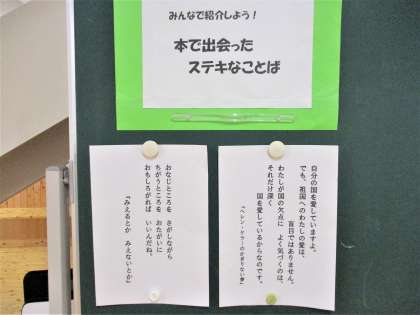 みんなで紹介しよう！
本で出会った
ステキなことば
自分の国を愛していますよ。
でも、祖国へのわたしの愛は、
盲目ではありません。
わたしが国の欠点に よく気づくのは、
それだけ深く
国を愛しているからなのです。
『ヘレン・ケラーのかぎりない夢』
おなじところを さがしながら
ちがうところを おたがいに
おもしろがれば いいんだね。
『みえるとか みえないとか』